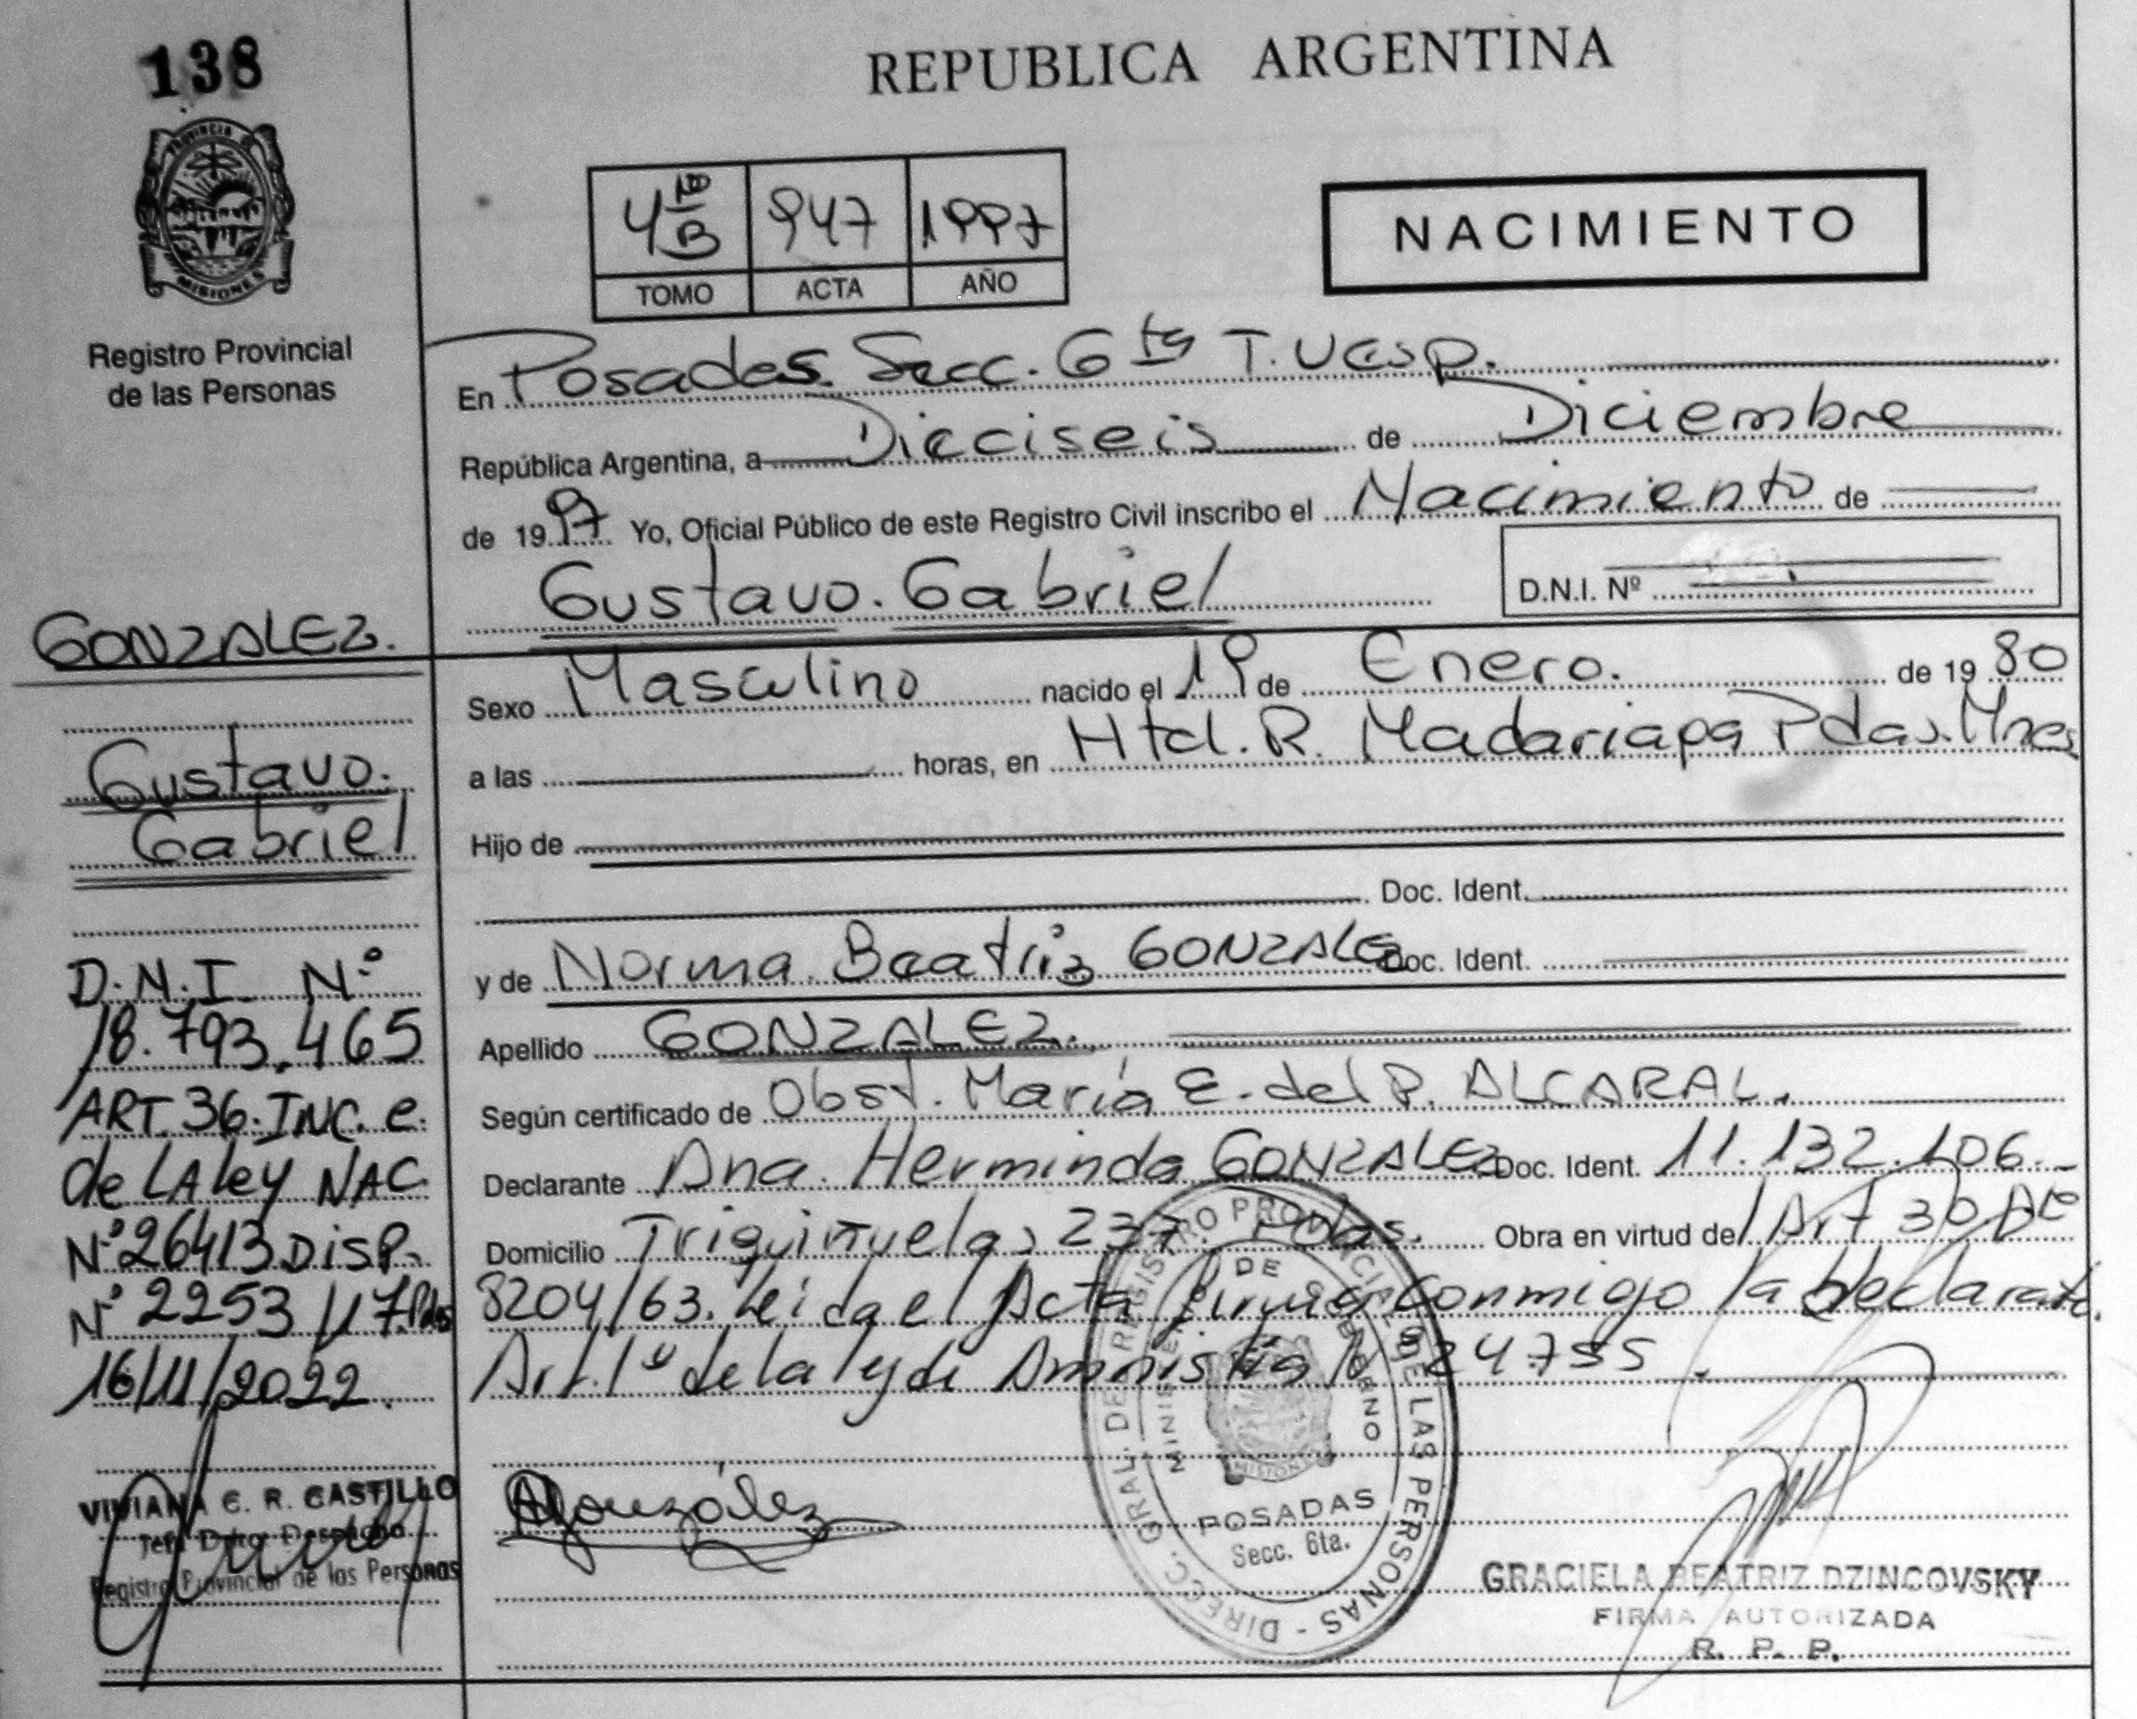 138
REPUBLICA ARGENTINA
PROVINCIA DE
MISIONES
Registro Provincial
de las Personas
4 B 947 1997
TOMO ACTA AÑO
NACIMIENTO
En Posadas. Secc. 6ta T. Vesp.
República Argentina, a Dieciseis de Diciembre
de 1997 Yo, Oficial Público de este Registro Civil inscribo el Nacimiento de
Gustavo. Gabriel
D.N.I. Nº
Sexo Masculino nacido el 1º de Enero. de 1980
a las horas, en Htal. R. Madariaga Pdas. Mnes
Hijo de
Doc. Ident.
y de Norma Beatriz GONZALEZ Doc. Ident.
Apellido GONZALEZ.
Según certificado de Obst. María E. del P. ALCARAL.
Declarante Ana. Herminda GONZALEZ Doc. Ident. 11.132.106.
Domicilio Triguiñuelas 237. Pdas. Obra en virtud de l Art 30
8204/63. Leida el Acta firma conmigo la Declarante.
Art. 1º de la ley de Amnistía Nº 24.755.
GONZALEZ.
Gustavo.
Gabriel
D.N.I Nº
18.793.465
ART. 36. INC. e.
de LA ley NAC
Nº 26413 DISP.
Nº 2253/17. Pdas
16/11/2022.
VIVIANA C. R. CASTILLO
Registro Provincial de las Personas
AGonzález
DIRECC. GRAL. DEL REGISTRO PROVINCIAL DE LAS PERSONAS -
MINISTERIO DE GOBIERNO
MISIONES
POSADAS
Secc. 6ta.
GRACIELA BEATRIZ DZINCOVSKY
FIRMA AUTORIZADA
R. P. P.